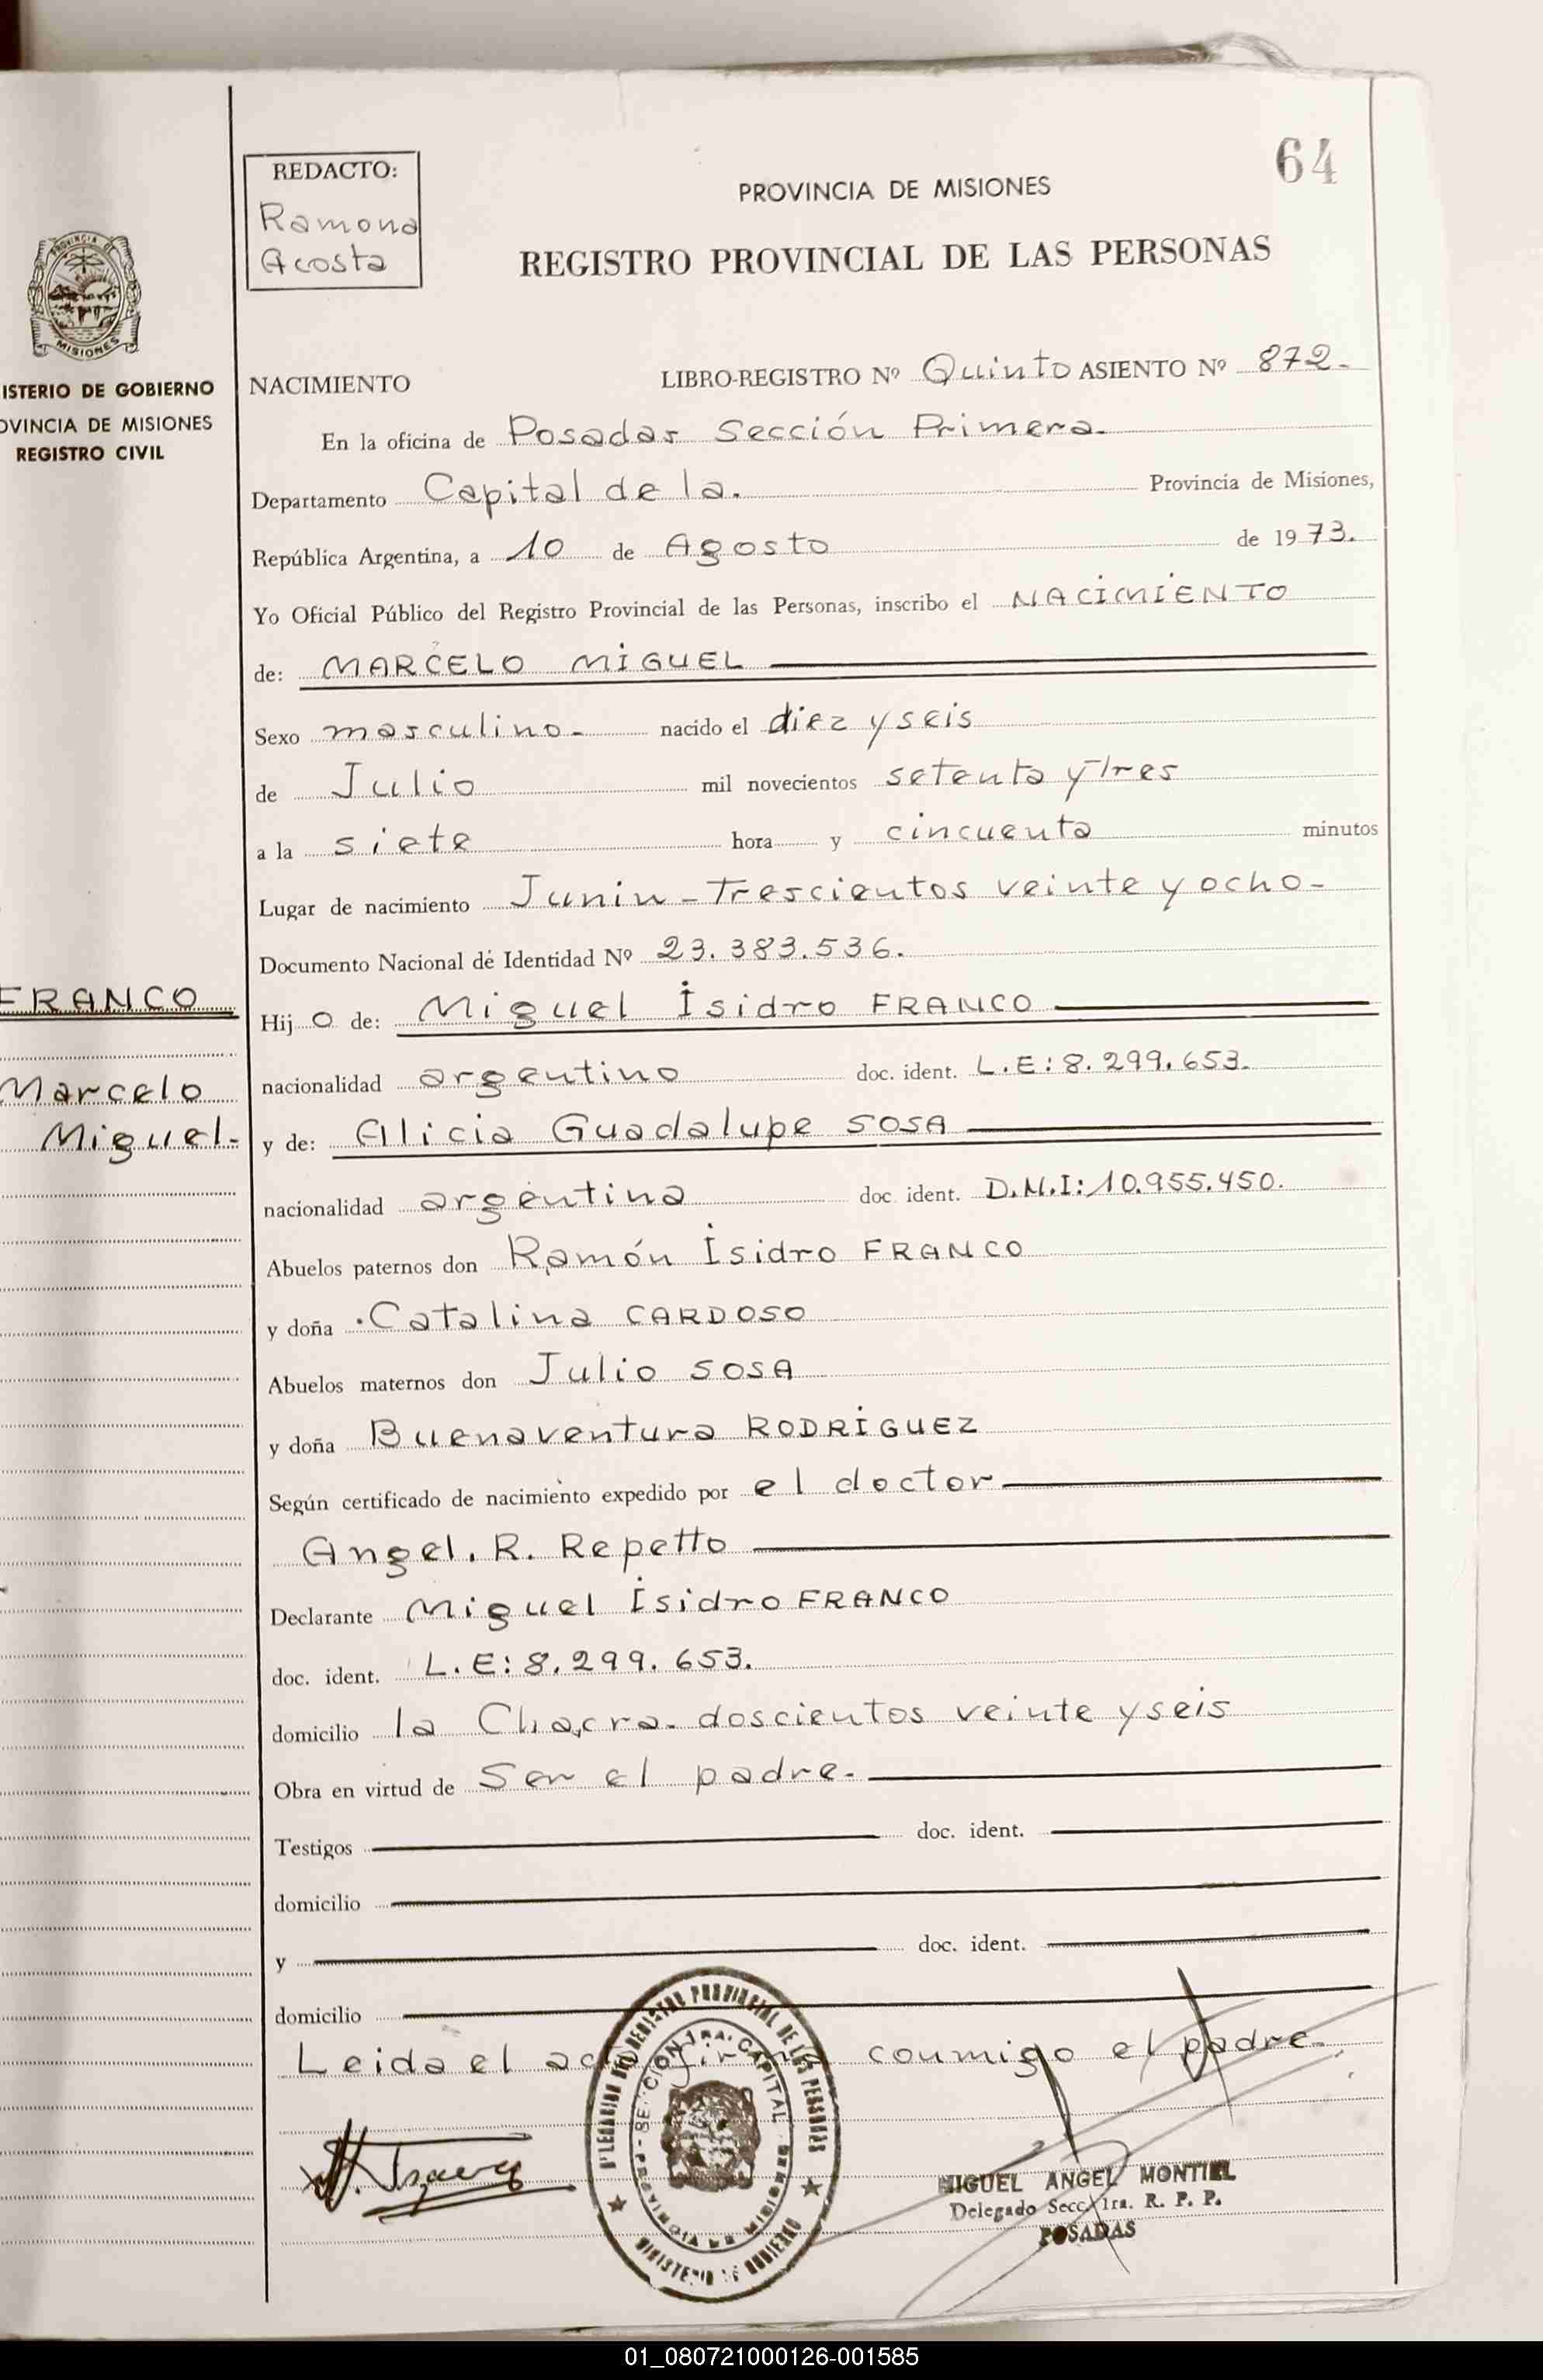 64
REDACTO:
Ramona
Acosta
PROVINCIA DE MISIONES
REGISTRO PROVINCIAL DE LAS PERSONAS
MISIONES
ISTERIO DE GOBIERNO
OVINCIA DE MISIONES
REGISTRO CIVIL
NACIMIENTO LIBRO-REGISTRO Nº Quinto ASIENTO Nº 872.
En la oficina de Posadas Sección Primera.
Departamento Capital de la. Provincia de Misiones,
República Argentina, a 10 de Agosto de 1973.
Yo Oficial Público del Registro Provincial de las Personas, inscribo el NACIMIENTO
de: MARCELO MIGUEL
Sexo masculino. nacido el diez y seis
de Julio mil novecientos setenta y tres
a la siete hora y cincuenta minutos
Lugar de nacimiento Junin - Trescientos veinte y ocho -
Documento Nacional de Identidad Nº 23.383.536.
FRANCO
Marcelo
Miguel.
Hij o de: Miguel Isidro FRANCO
nacionalidad argentino doc. ident. L.E: 8.299.653.
y de: Alicia Guadalupe SOSA
nacionalidad argentina doc. ident. D.N.I: 10.955.450.
Abuelos paternos don Ramón Isidro FRANCO
y doña Catalina CARDOSO
Abuelos maternos don Julio SOSA
y doña Buenaventura RODRIGUEZ
Según certificado de nacimiento expedido por el doctor
Angel. R. Repetto
Declarante Miguel Isidro FRANCO
doc. ident. L.E: 8.299.653.
domicilio la Chacra. doscientos veinte y seis
Obra en virtud de Ser el padre.
Testigos doc. ident.
domicilio
y doc. ident.
domicilio
Leida el acta firma conmigo el padre.
MIGUEL ANGEL MONTIEL
Delegado Secc. 1ra. R. P. P.
POSADAS
01_080721000126-001585